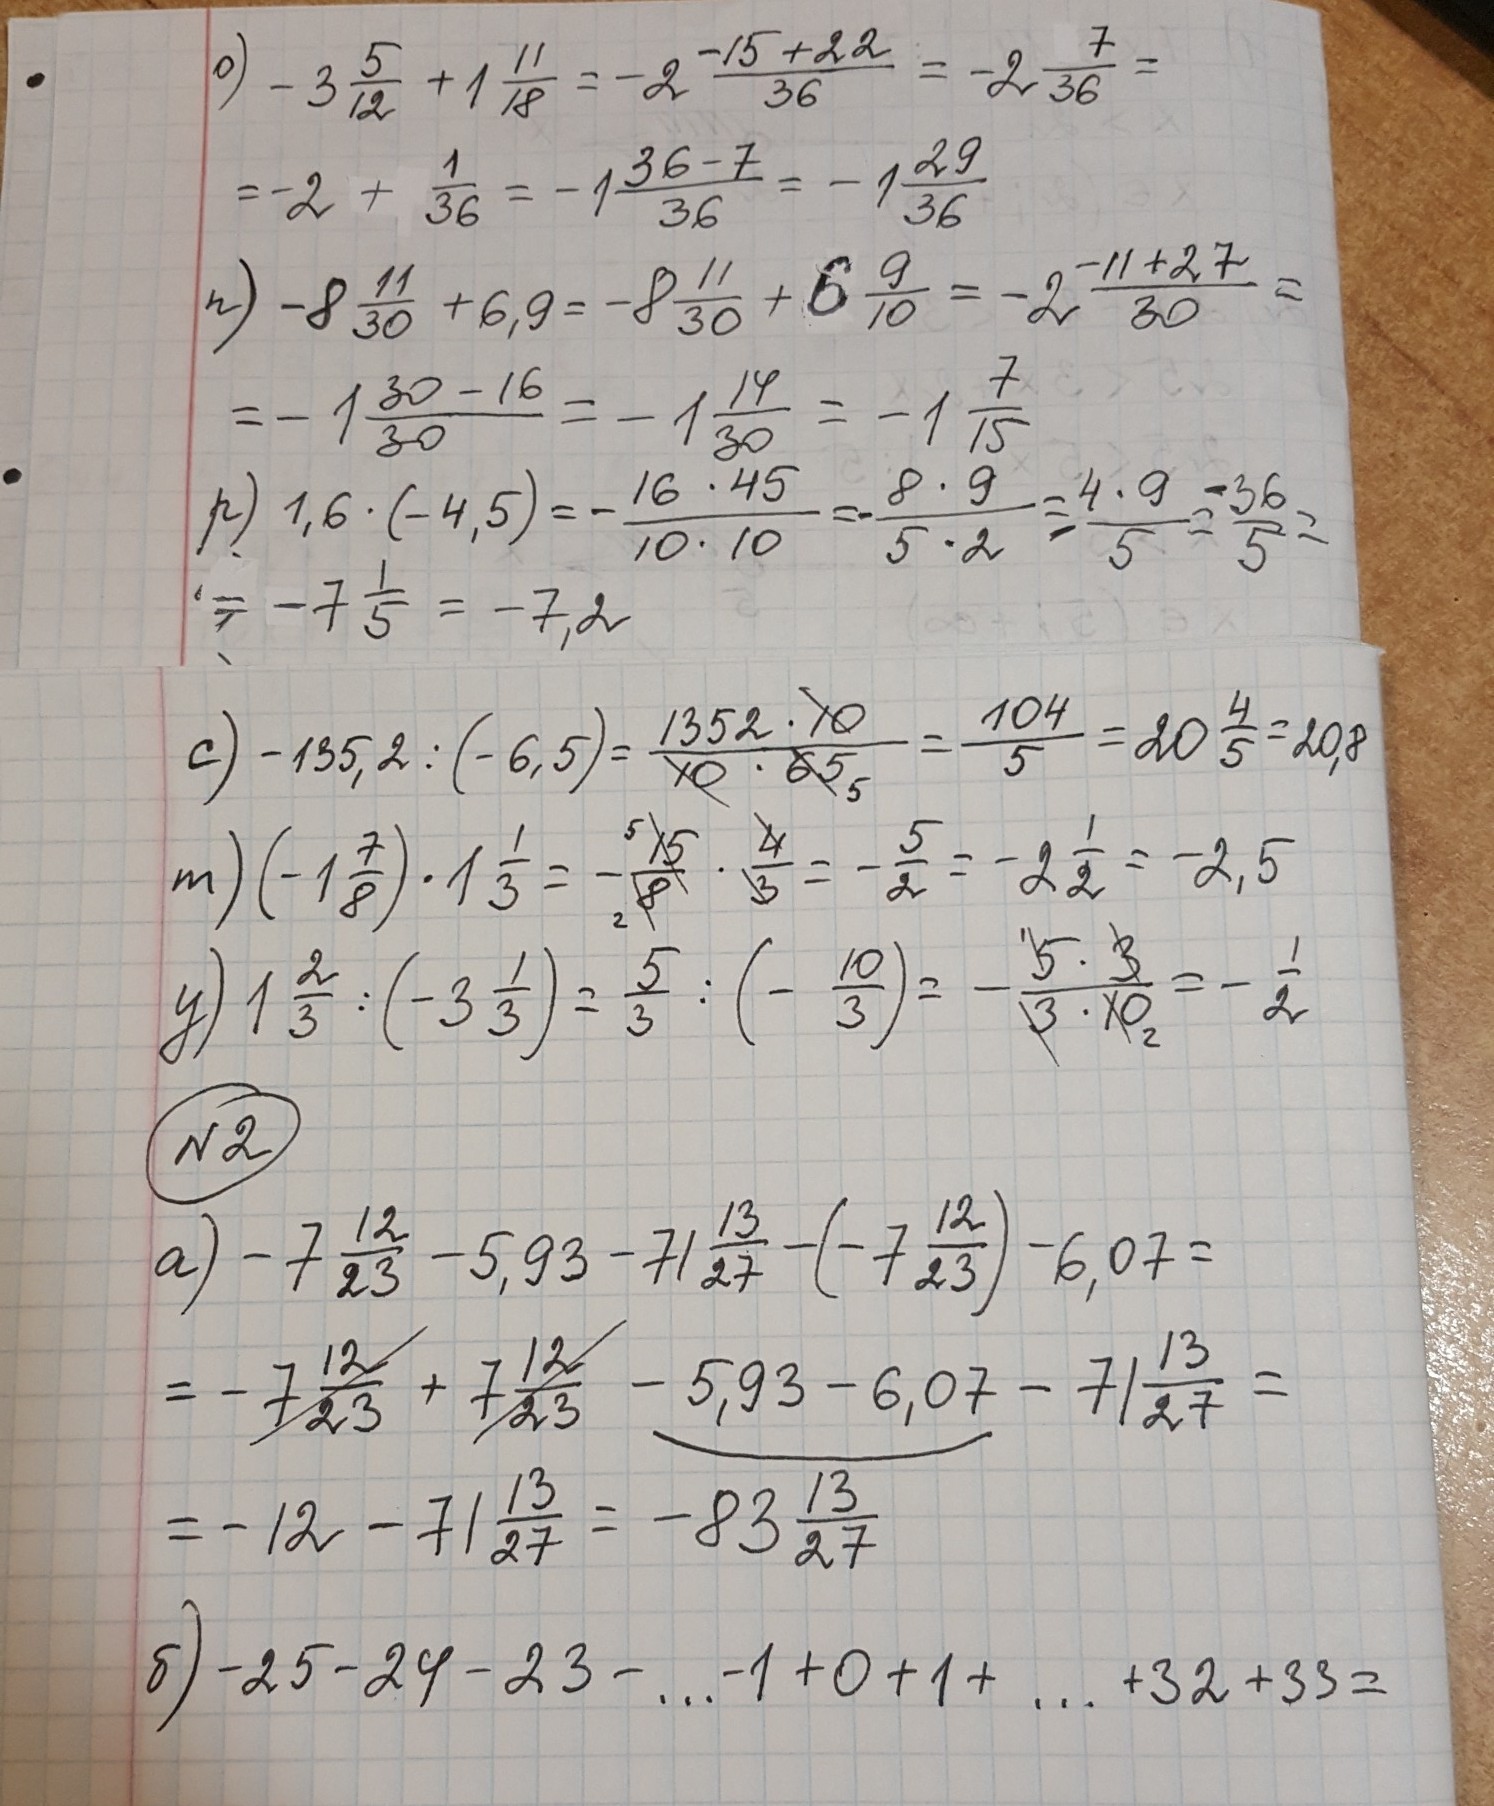 о) -3 5/12 + 1 11/18 = -2 (-15+22)/36 = -2 7/36 =
= -2 + 1/36 = -1 (36-7)/36 = -1 29/36
п) -8 11/30 + 6,9 = -8 11/30 + 6 9/10 = -2 (-11+27)/30 =
= -1 (30-16)/30 = -1 14/30 = -1 7/15
р) 1,6 · (-4,5) = - (16 · 45)/(10 · 10) = - (8 · 9)/(5 · 2) = - (4 · 9)/5 = -36/5 =
= -7 1/5 = -7,2
с) -135,2 : (-6,5) = (1352 · 10)/(10 · 65) 5 = 104/5 = 20 4/5 = 20,8
т) (-1 7/8) · 1 1/3 = - 5 15/8 2 · 4/3 = - 5/2 = -2 1/2 = -2,5
у) 1 2/3 : (-3 1/3) = 5/3 : (- 10/3) = - (1 5 · 3)/(3 · 10 2) = - 1/2
N2
а) -7 12/23 - 5,93 - 71 13/27 - (-7 12/23) - 6,07 =
= -7 12/23 + 7 12/23 - 5,93 - 6,07 - 71 13/27 =
= -12 - 71 13/27 = -83 13/27
б) -25-24-23-...-1+0+1+ ... +32+33=